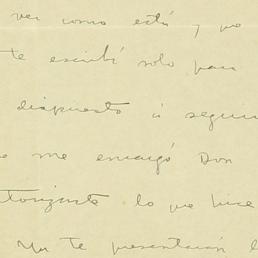 ver como está y po
te escribí solo para
dispuesto a seguir
me encargó Don
lo que hice
Ya te presentarán l